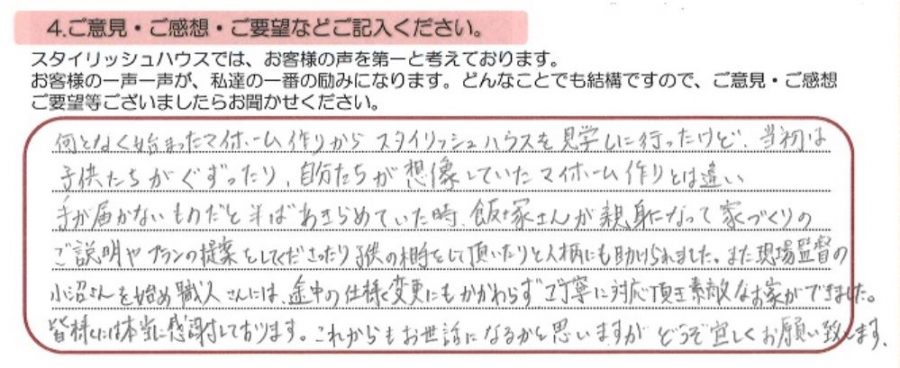 4.ご意見・ご感想・ご要望などご記入ください。
スタイリッシュハウスでは、お客様の声を第一と考えております。
お客様の一声一声が、私達の一番の励みになります。どんなことでも結構ですので、ご意見・ご感想
ご要望等ございましたらお聞かせください。
何となく始まったマイホーム作りから スタイリッシュハウスを見学しに行ったけど、当初は
子供たちがぐずったり、自分たちが想像していたマイホーム作りとは違い
手が届かないものだと半ばあきらめていた時、飯塚さんが親身になって家づくりの
ご説明やプランの提案をしてくださったり子供の相手をして頂いたりと人柄にも助けられました。また現場監督の
小沼さんを始め職人さんには、途中の仕様変更にもかかわらずご丁寧に対応頂き素敵なお家ができました。
皆様には本当に感謝しております。これからもお世話になるかと思いますが どうぞ宜しくお願い致します。